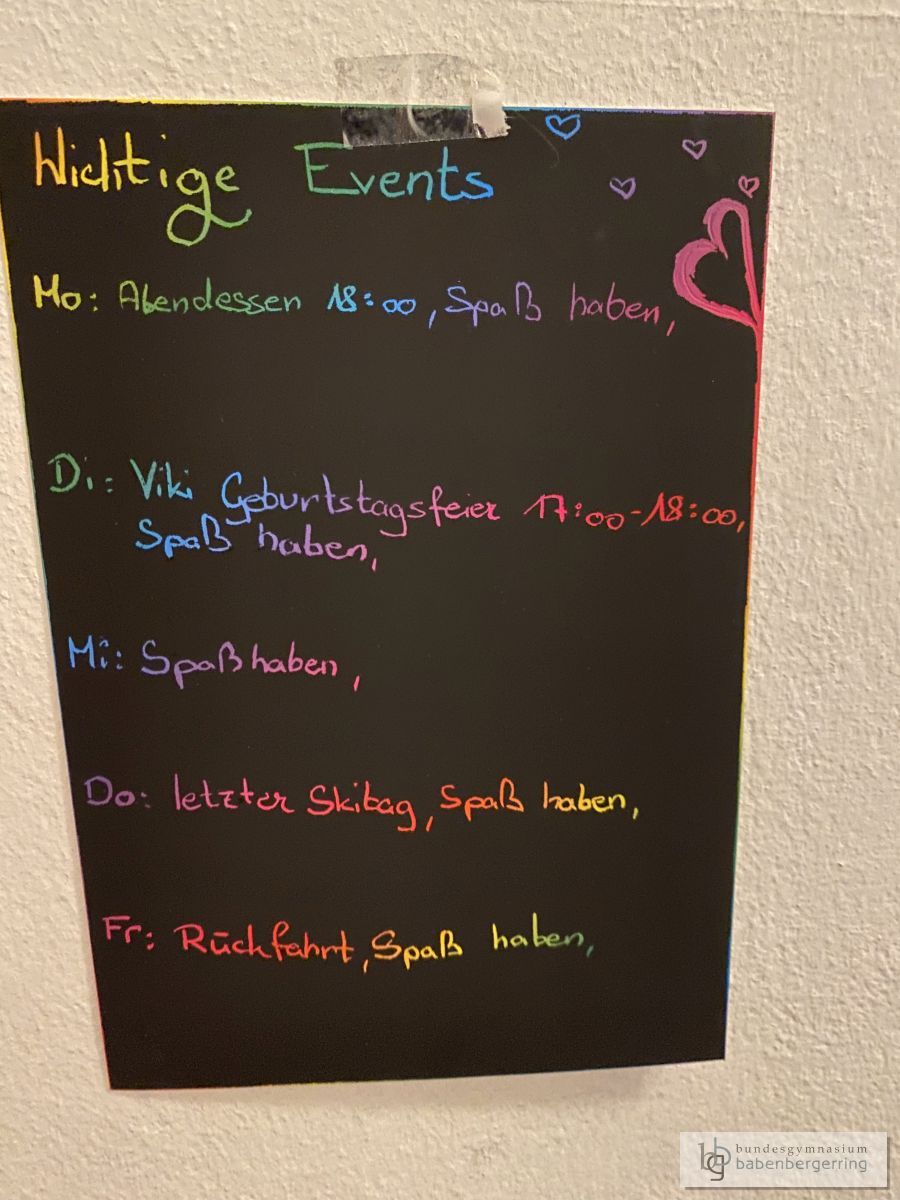 Wichtige Events
Mo: Abendessen 18:00, Spaß haben,
Di: Viki Geburtstagsfeier 17:00-18:00,
Spaß haben,
Mi: Spaß haben,
Do: letzter Skitag, Spaß haben,
Fr: Rückfahrt, Spaß haben,
bg bundesgymnasium
babenbergerring